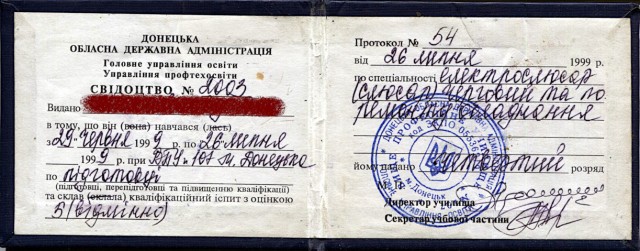 ДОНЕЦЬКА
ОБЛАСНА ДЕРЖАВНА АДМІНІСТРАЦІЯ
Головне управління освіти
Управління профтехосвіти
СВІДОЦТВО № 2003
Видано
в тому, що він (вона) навчався (лась)
з 29 червня 1999 р. по 26 липня
1999 р. при ВПУ-101 м. Донецька
по підготовці
(підготовці, перепідготовці та підвищенню кваліфікації)
та склав (склала) кваліфікаційний іспит з оцінкою
5 (відмінно)
Протокол № 54
від 26 липня 1999 р.
по спеціальності електрослюсар
(слюсар) черговий та по
ремонту обладнання
йому надано четвертий розряд
М. П.
Директор училища
Секретар учбової частини
м. Донецьк